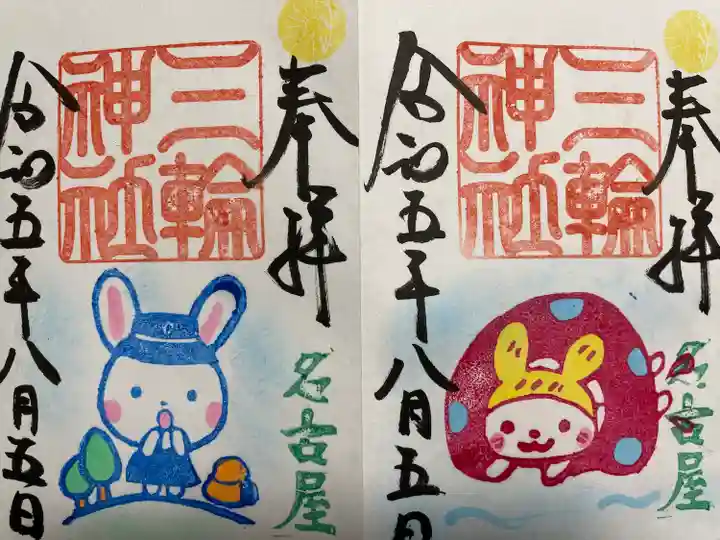 奉拝
三輪
神社
名古屋
令和五年八月五日
奉拝
三輪
神社
名古屋
令和五年八月五日